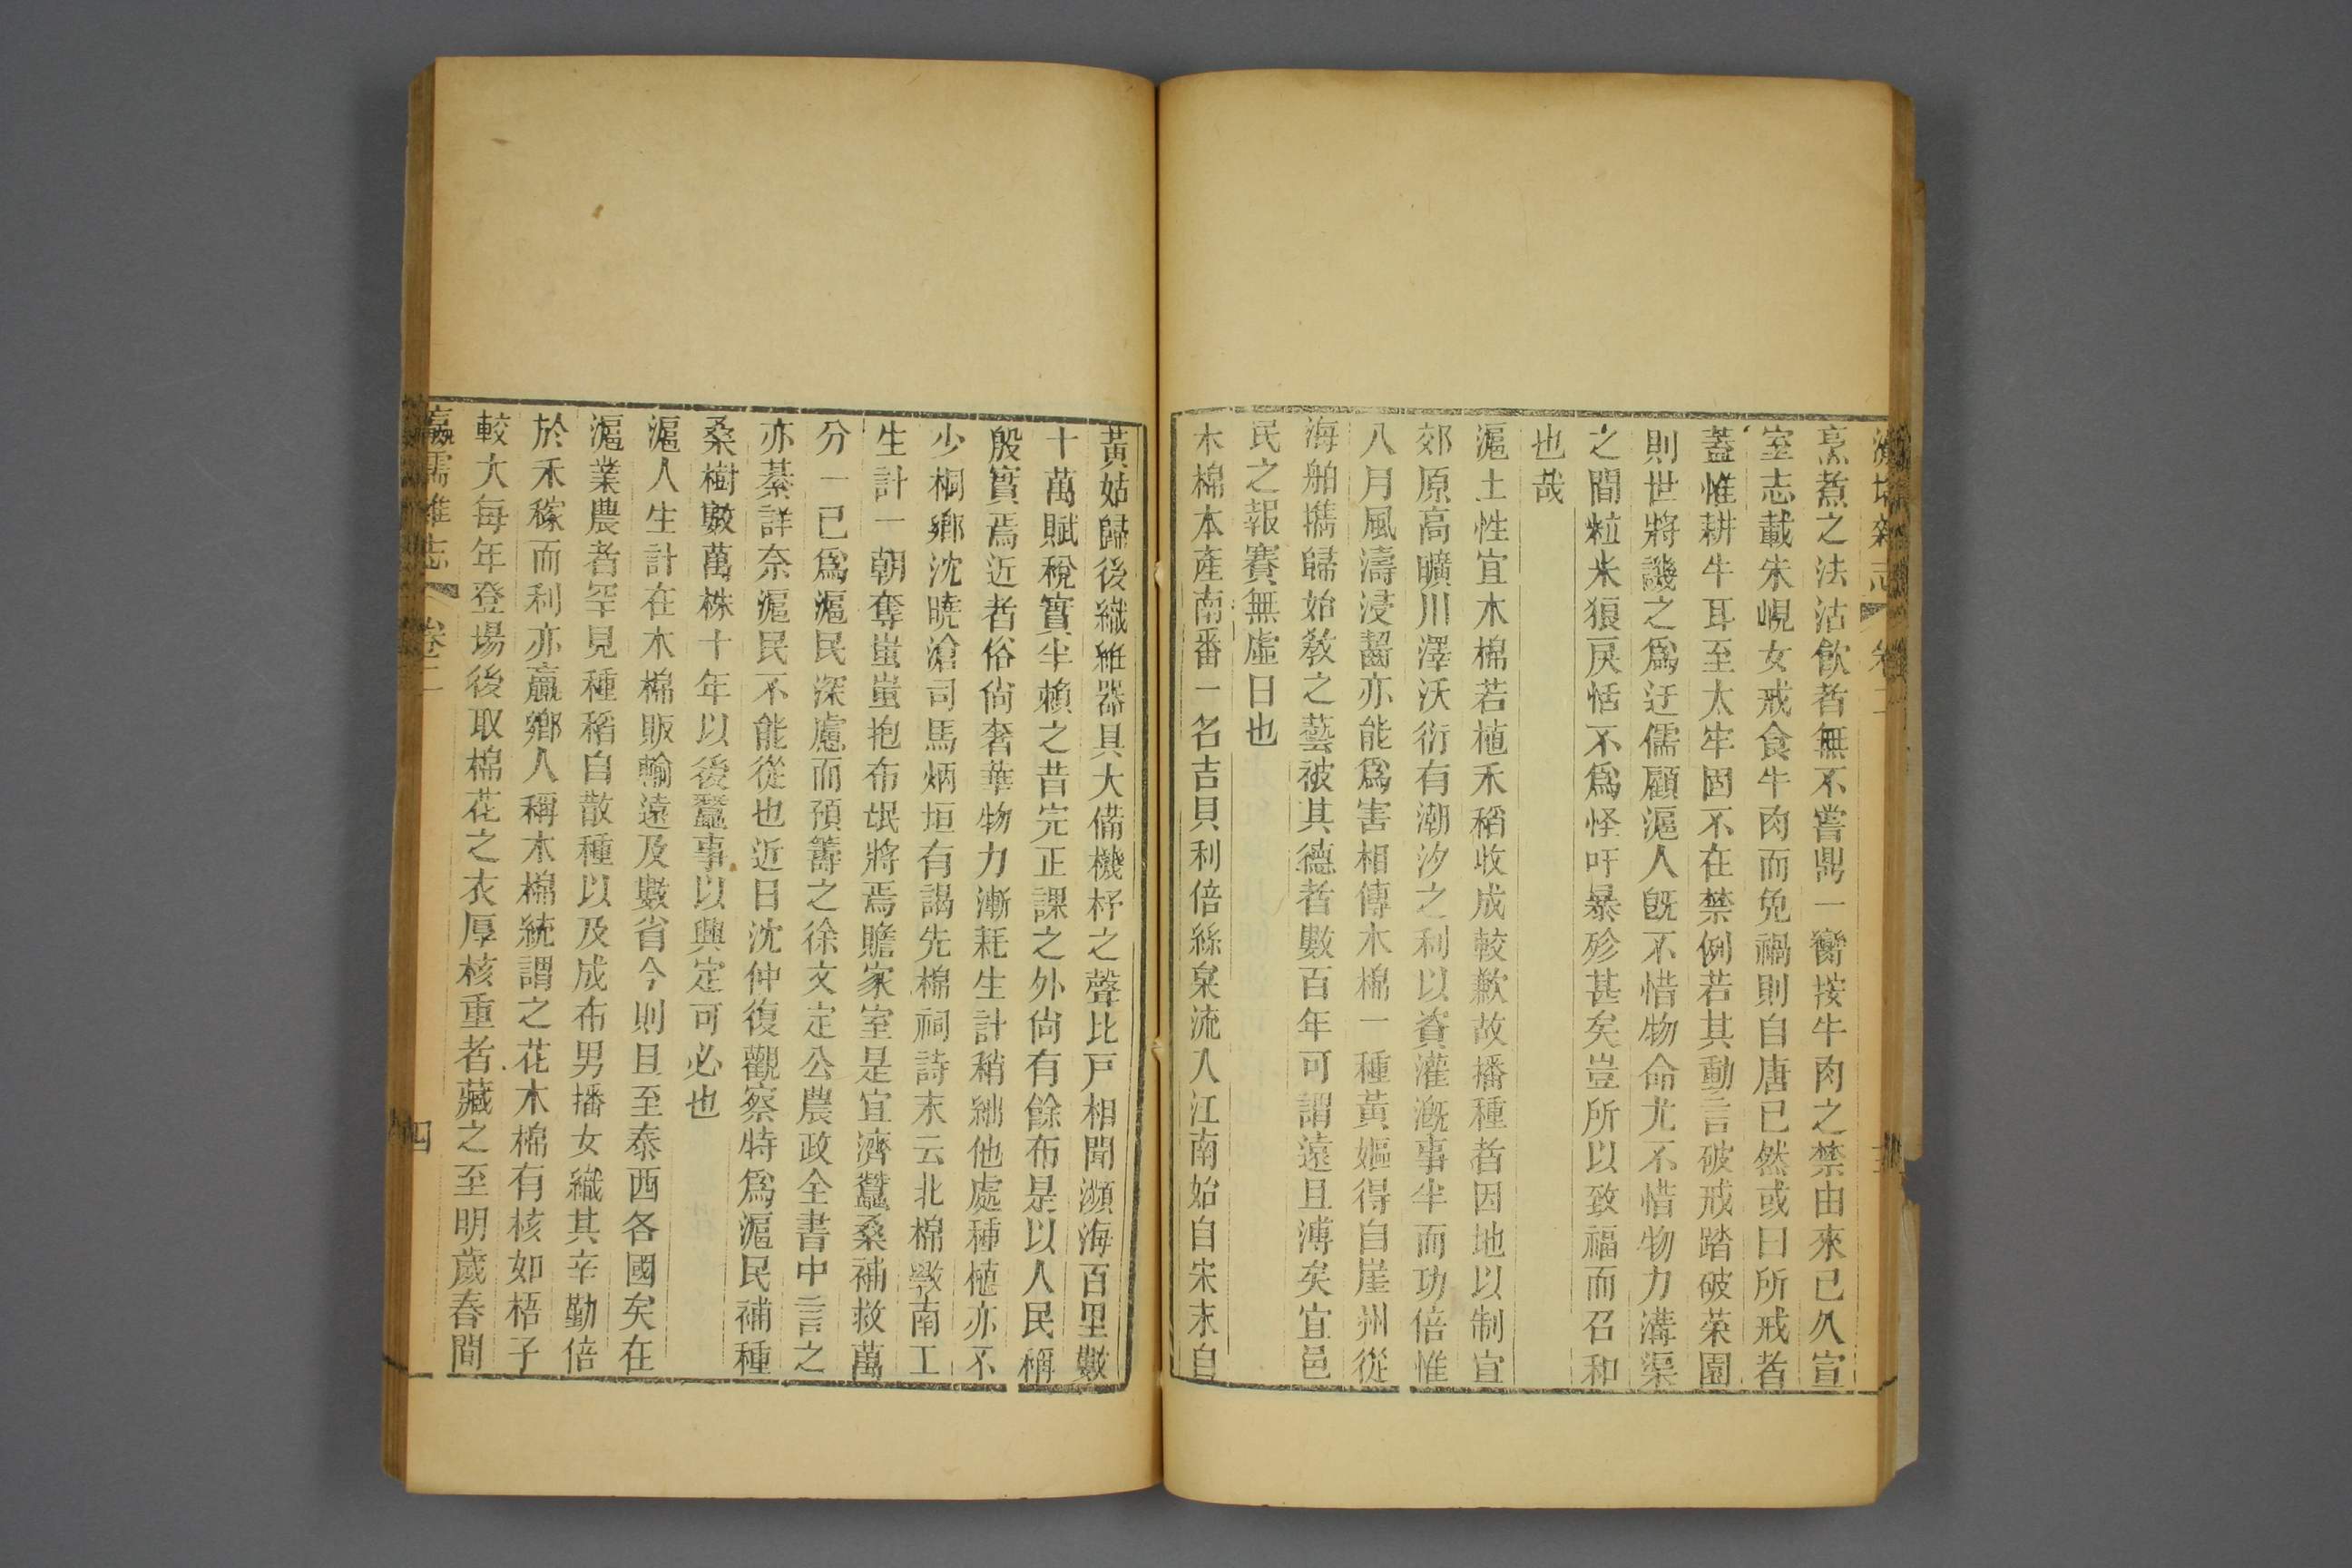 瀛壖雜志 卷二
烹煮之法沽飲者無不嘗鼎一臠按牛肉之禁由來已久宣
室志載朱峴女戒食牛肉而免禍則自唐已然或曰所戒者
蓋惟耕牛耳至太牢固不在禁例若其動言破戒踏破菜園
則世將譏之爲迂儒顧滬人旣不惜物命尤不惜物力溝渠
之間粒米狼戾恬不爲怪吁暴殄甚矣豈所以致福而召和
也哉
滬土性宜木棉若植禾稻收成較歉故播種者因地以制宜
郊原高曠川澤沃衍有潮汐之利以資灌漑事半而功倍惟
八月風濤浸齧亦能爲害相傳木棉一種黃嫗得自崖州從
海舶攜歸始敎之藝被其德者數百年可謂遠且溥矣宜邑
民之報賽無虛日也
木棉本產南番一名吉貝利倍絲枲流入江南始自宋末自
黃姑歸後織紝器具大備機杼之聲比戸相聞瀕海百里數
十萬賦稅實半賴之昔完正課之外尙有餘布是以人民稱
殷實焉近者俗尙奢華物力漸耗生計稍絀他處種植亦不
少桐鄉沈曉滄司馬炳垣有謁先棉祠詩末云北棉斅南工
生計一朝奪蚩蚩抱布氓將焉贍家室是宜濟蠶桑補救萬
分一已爲滬民深慮而預籌之徐文定公農政全書中言之
亦綦詳奈滬民不能從也近日沈仲復觀察特爲滬民補種
桑樹數萬株十年以後蠶事以興定可必也
滬人生計在木棉販輸遠及數省今則且至泰西各國矣在
滬業農者罕見種稻自散種以及成布男播女織其辛勤倍
於禾稼而利亦贏鄉人稱木棉統謂之花木棉有核如梧子
較大每年登場後取棉花之衣厚核重者藏之至明歲春間
瀛壖雜志 卷二 四